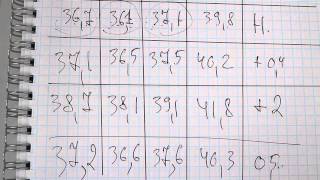 36,7 36,1 37,1 39,8 Н.
37,1 36,5 37,5 40,2 +0,4
38,7 38,1 39,1 41,8 +2
37,2 36,6 37,6 40,3 0,5